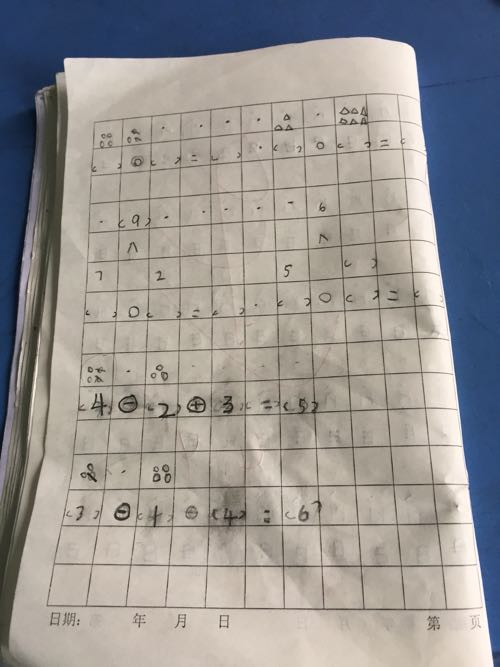 ( ) ○ ( ) = ( ) · ( ) ○ ( ) = (
· (9) · · · · · 6
∧ ∧
7 2 5 ( )
( ) ○ ( ) = ( ) · ( ) ○ ( ) = (
(4) ⊖ (2) ⊕ (3) = (5)
(3) ⊖ (1) ⊕ (4) = (6)
日期: 年 月 日 第 页